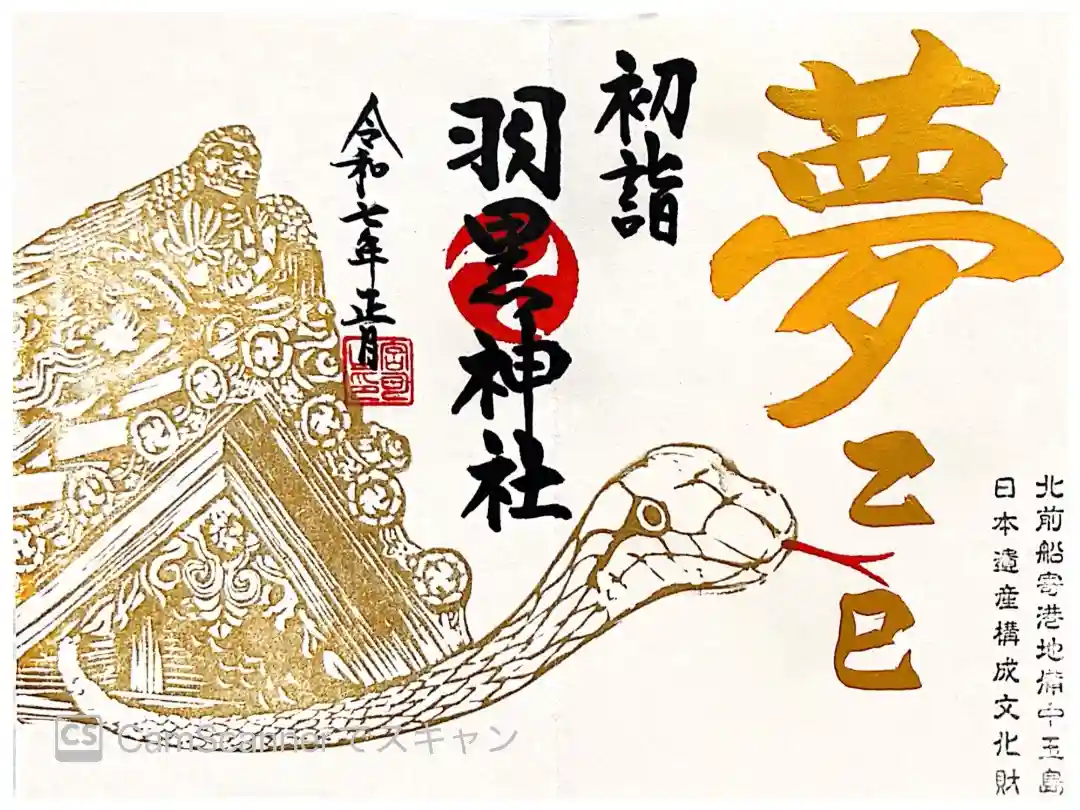 夢
乙巳
北前船寄港地備中玉島
日本遺産構成文化財
初詣
羽黒神社
令和七年正月
CS CamScannerでスキャン